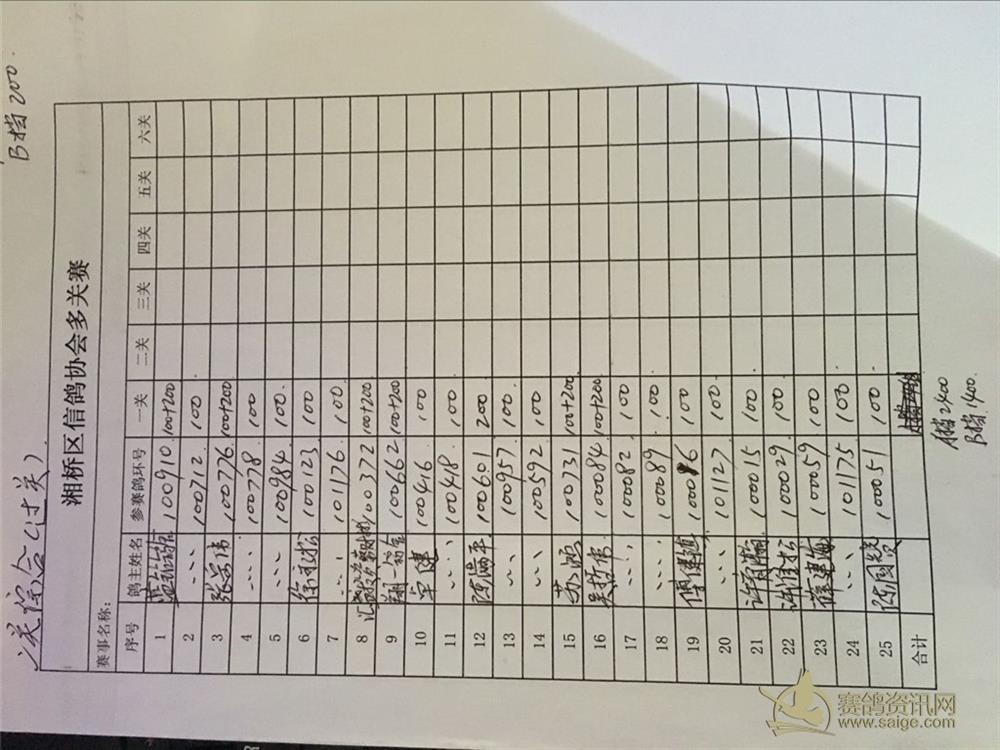 关综合(过关)
B档200.
湘桥区信鸽协会多关赛
赛事名称:
序号 鸽主姓名 参赛鸽环号 一关 二关 三关 四关 五关 六关
1 100910 100+200
2 〃 100712 100
3 张宗伟 100776 100+200
4 〃 100778 100
5 〃 100984 100
6 100123 100
7 〃 101176 100
8 100372 100+200
9 翔 100662 100+200
10 卓建 100416 100
11 〃 100418 100
12 陈满平 100601 200
13 〃 100957 100
14 〃 100592 100
15 苏鸿 100731 100+200
16 吴哲伟 100084 100+200
17 〃 100082 100
18 〃 100089 100
19 傅建雄 100086 100
20 〃 101127 100
21 100015 100
22 许佳松 100029 100
23 薛建海 100059 100
24 〃 101175 100
25 陈国贤 100051 100
合计
A档2400
B档1400.
赛鸽资讯网
www.saige.com